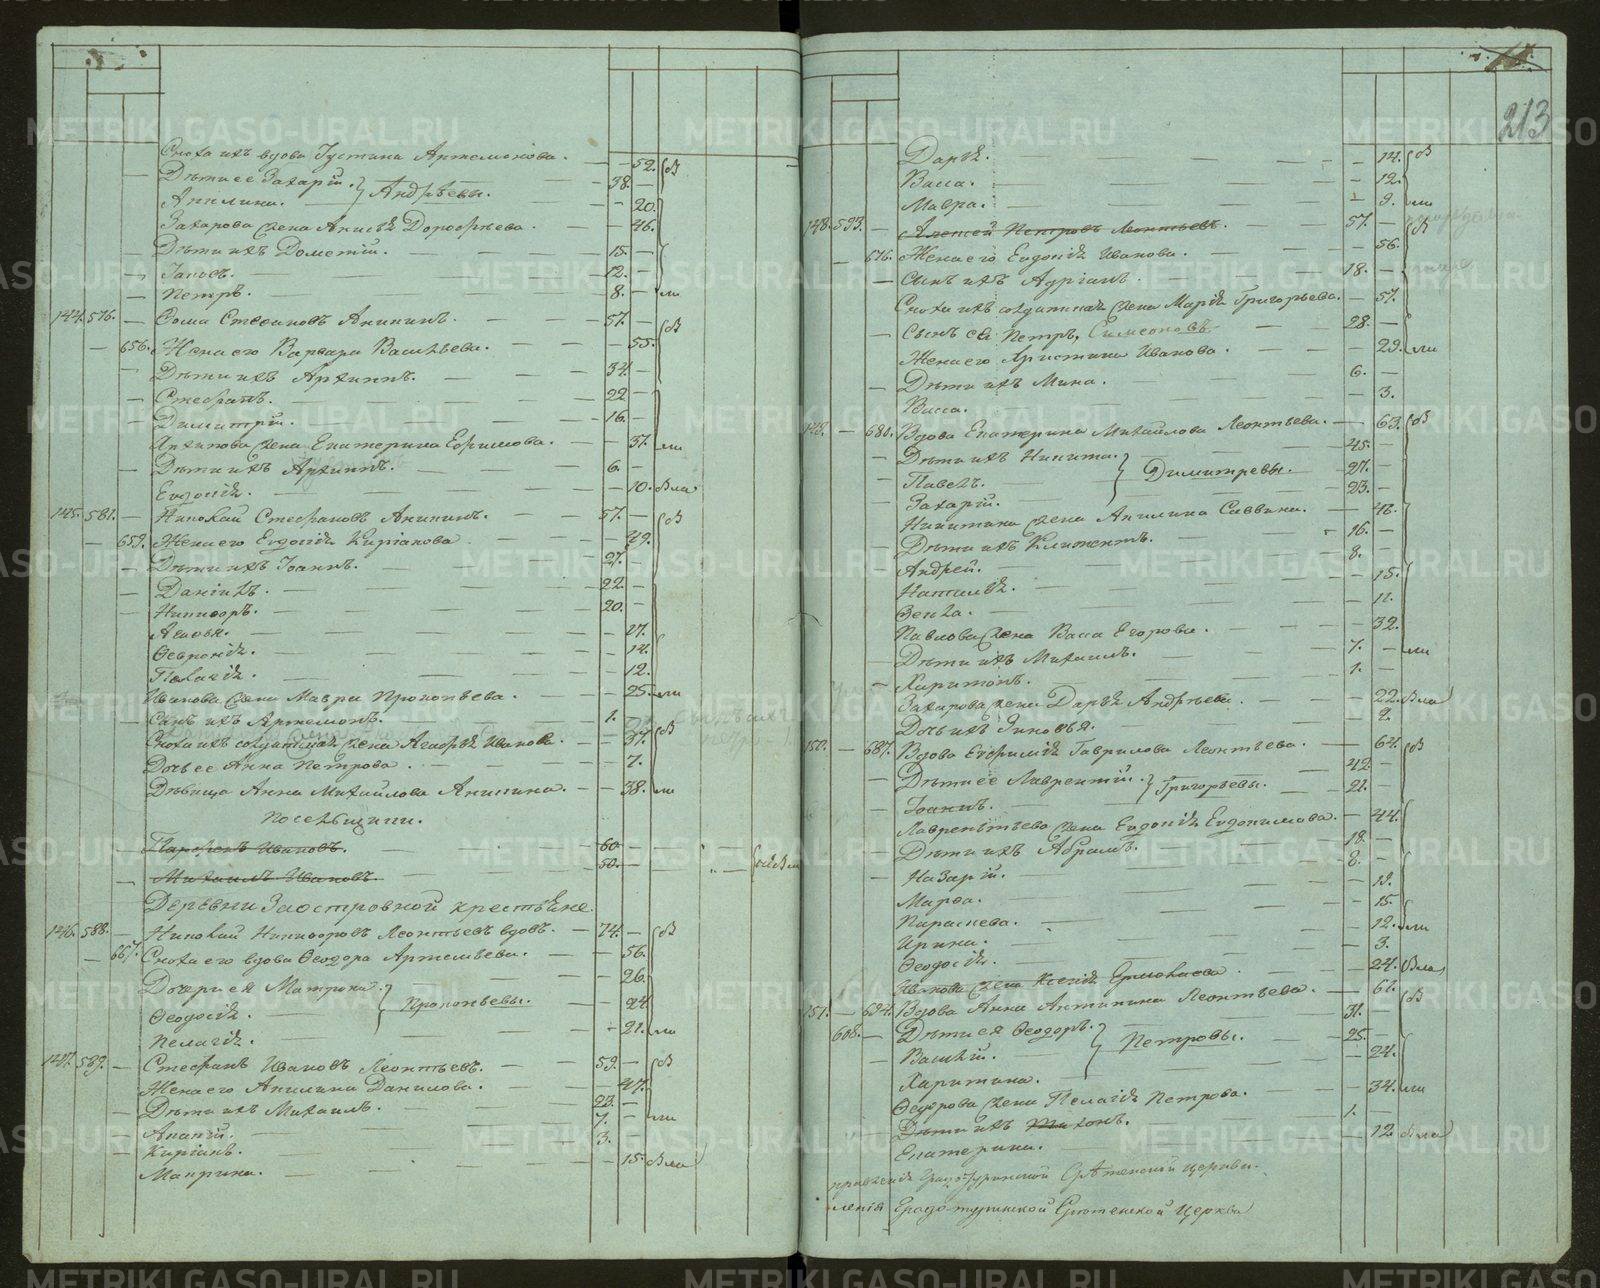 Сноха ихъ вдова Густина Артемонова. 52. В
Дѣти ее Захарiй. 38.
Андрѣевы.
Акилина. 20.
Захарова жена Анисья Дорофѣева. 46.
Дѣти ихъ Дометiй. 15.
Iаковъ. 12.
Петръ. 8. ли
144. 576. Ѳома Стефановъ Аникинъ. 57. В
656. Жена его Варвара Васильева. 55.
Дѣти ихъ Архиппъ. 34.
Стефанъ. 22
Димитрiй. 16.
Архипова жена Екатерина Ефимова. 37. ли
Дѣти ихъ Архиппъ. 6.
Евдокiя. 10. Вла
145. 581. Николай Стефановъ Аникинъ. 57. В
659. Жена его Евдокiя Кирiакова 49.
Дѣти ихъ Iоаннъ. 27.
Данiилъ. 22.
Никифоръ. 20.
27.
Февронiя. 14.
Пелагiя. 12.
Иванова жена Мавра Прокопьева. 25. ли
Сынъ ихъ Артемонъ. 1.
Сноха ихъ солдатская жена Иванова. 37. В
Дочь ее Анна Петрова. 7.
Дѣвица Анна Михайлова Аникина. 38. ли
Посельщики.
Парфенъ Ивановъ. 60.
Михаилъ Ивановъ. 50.
Деревни Заостровной крестьяне
146. 588. Николай Никифоровъ Леонтьевъ вдовъ. 74. В
667. Сноха его вдова Ѳеодора Артемьева. 56.
Дочери ея Матрона. 26.
Прокопьевы.
Ѳеодосiя. 24
Пелагiя. 21. ли
147. 589. Стефанъ Ивановъ Леонтьевъ. 59. В
Жена его Акилина Данилова. 47.
Дѣти ихъ Михаилъ. 23.
Ананiй. 7. ли
Кирiакъ. 3.
Маврина. 15. Вла
213
Дарья. 14. В
Васса. 12.
Мавра. 9. ли
148. 593. Алексей Петровъ Леонтьевъ. 57.
676. Жена его Евдокiя Иванова. 56. В
Сынъ ихъ Адрiанъ. 18.
Сноха ихъ солдатская жена Марiя Григорьева. 57.
Сынъ ея Петръ, Симеоновъ 28.
Жена его Христина Иванова. 29. ли
Дѣти ихъ Мина. 6.
Васса. 3.
149. 680. Вдова Екатерина Михайлова Леонтьева. 63. В
Дѣти ихъ Никита. 45.
Димитревы.
Павелъ. 27.
Захарiй. 23.
Никитина жена Акилина Саввина. 46.
Дѣти ихъ Климентъ. 16.
Андрей. 8.
Наталья. 15.
11.
Павлова жена Васса Егорова. 32.
Дѣти ихъ Михаилъ. 7. ли
Харитонъ. 1.
Захарова жена Дарья Андрѣева. 22. Вла
Дочь ихъ Зиновья. 2.
150. 687. Вдова Евфимiя Гаврилова Леонтьева. 64. В
Дѣти ее Лаврентiй. 42
Григорьевы.
Iоаннъ. 21.
Лаврентьева жена Евдокiя Евдокимова. 44.
Дѣти ихъ Абрамъ. 18.
Назарiй. 8.
Марѳа. 19.
Параскева. 15.
Ирина. 12. ли
Ѳеодосiя. 3.
Иванова жена Ксенiя Ермолаева. 24. Вла
151. 694. Вдова Анна Антипина Леонтьева. 61. В
608. Дѣти ея Ѳеодоръ. 31.
Петровы.
Василiй. 25.
Харитина. 24.
Ѳедорова жена Пелагiя Петрова. 34. ли
Дѣти ихъ Тихонъ. 1.
Екатерина. 12 Вла
Градо-Туринской Срѣтенской церкви.
ленiя Градо-туринской Срѣтенской Церкви
METRIKI.GASO-URAL.RU